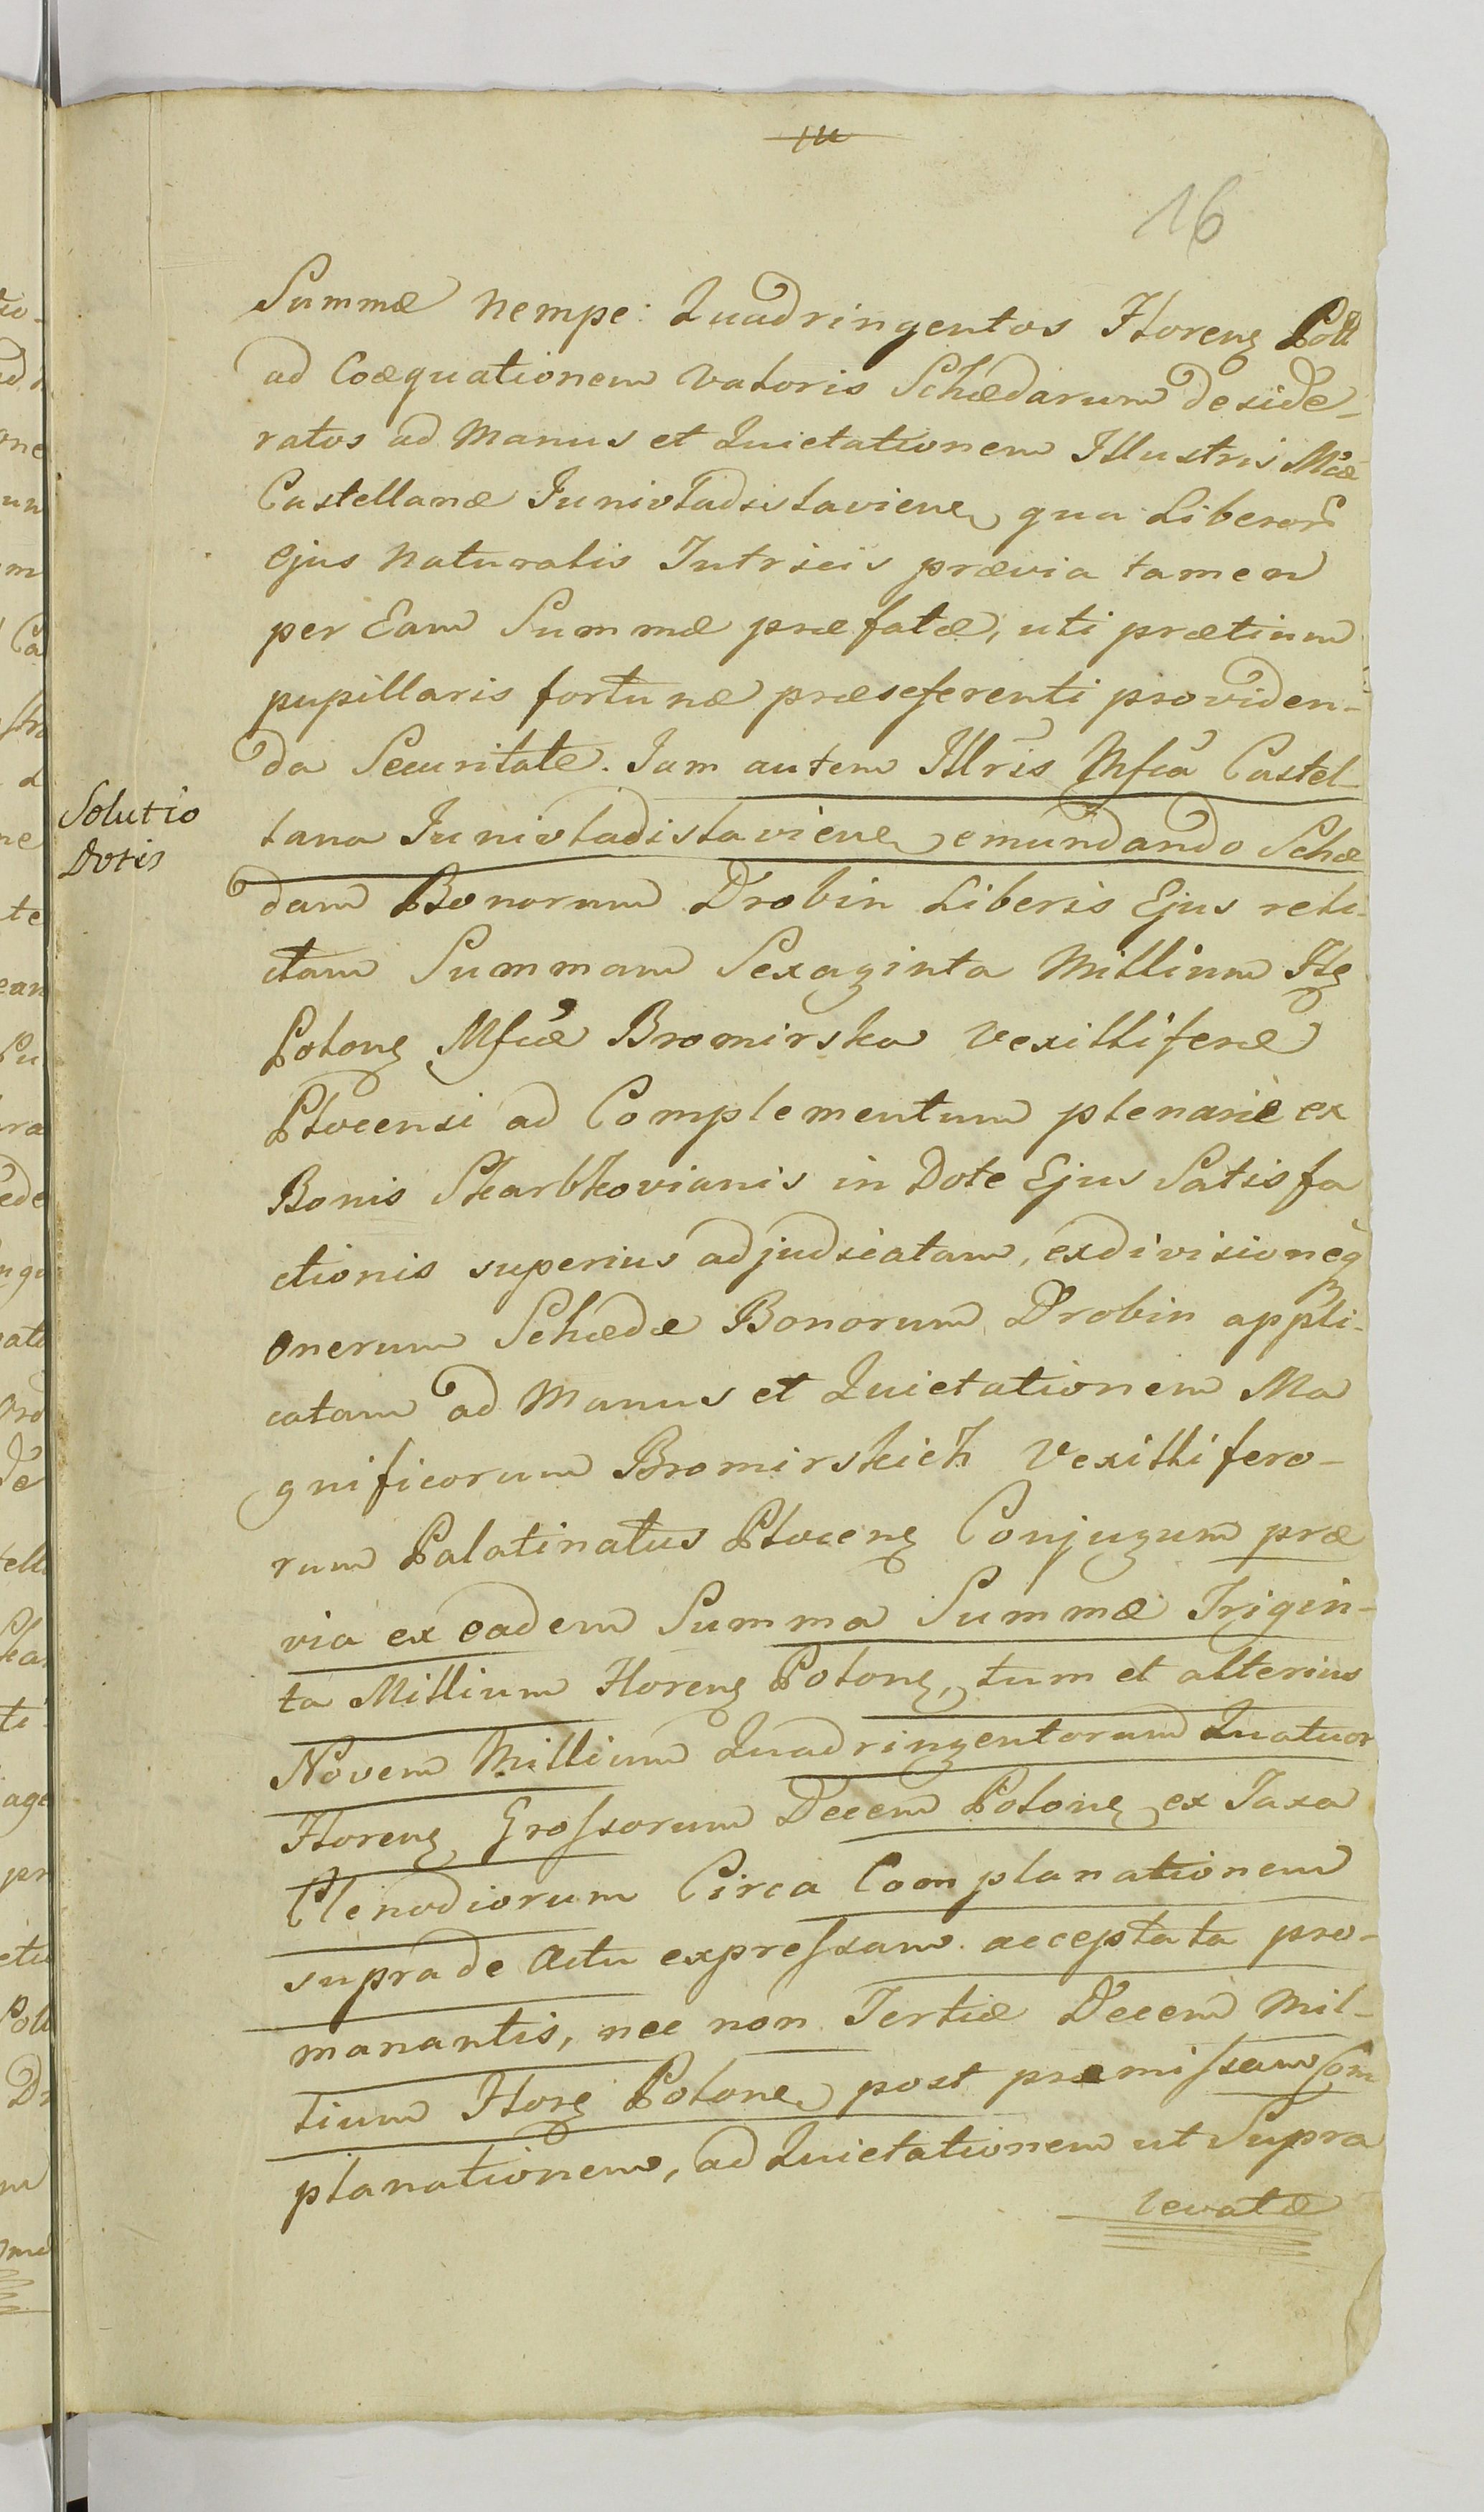 16
Summæ nempe: Quadringentos Floren Poll
ad Coæquationem Valoris Schædarum deside-
ratos ad Manus et Quietationem Illustris Mcæ
Castellanæ Junivladislavien, qua Liberor
Ejus Naturalis Tutricis prævia tamen
per Eam Summæ præfatæ, uti prætium
pupillaris fortunæ præseferenti providen-
da Securitate. Jam autem Illris Mfica Castel-
lana Junivladislavien emundando Schæ
dam Bonorum Drobin Liberis Ejus reli-
ctam Summam Sexaginta Millium Fl
Polon Mficæ Bromirska Vexilliferæ
Plocensi ad Complementum plenariè ex
Bonis Skarbkovianis in Dote Ejus Satisfa
ctionis superius adjudicatam, exdivisioneq
Onerum Schædæ Bonorum Drobin appli-
catam ad Manus et Quietationem Ma
gnificorum Bromirskich Vexillifero-
Solutio
Dotis
rum Palatinatus Plocen Conjugum præ
via ex eadem Summa Summæ Trigin-
ta Millium Floren Polon, tum et alterius
Novem Millium Quadringentorum Quatuor
Floren Grossorum Decem Polon ex Taxa
Clenodiorum Circa Complanationem
supra de Actu expressam acceptata pro-
manantis, nec non Tertiæ Decem Mil-
lium Flor Polone post præmissam Com
planationem, ad Quietationem ut Supra
levatæ